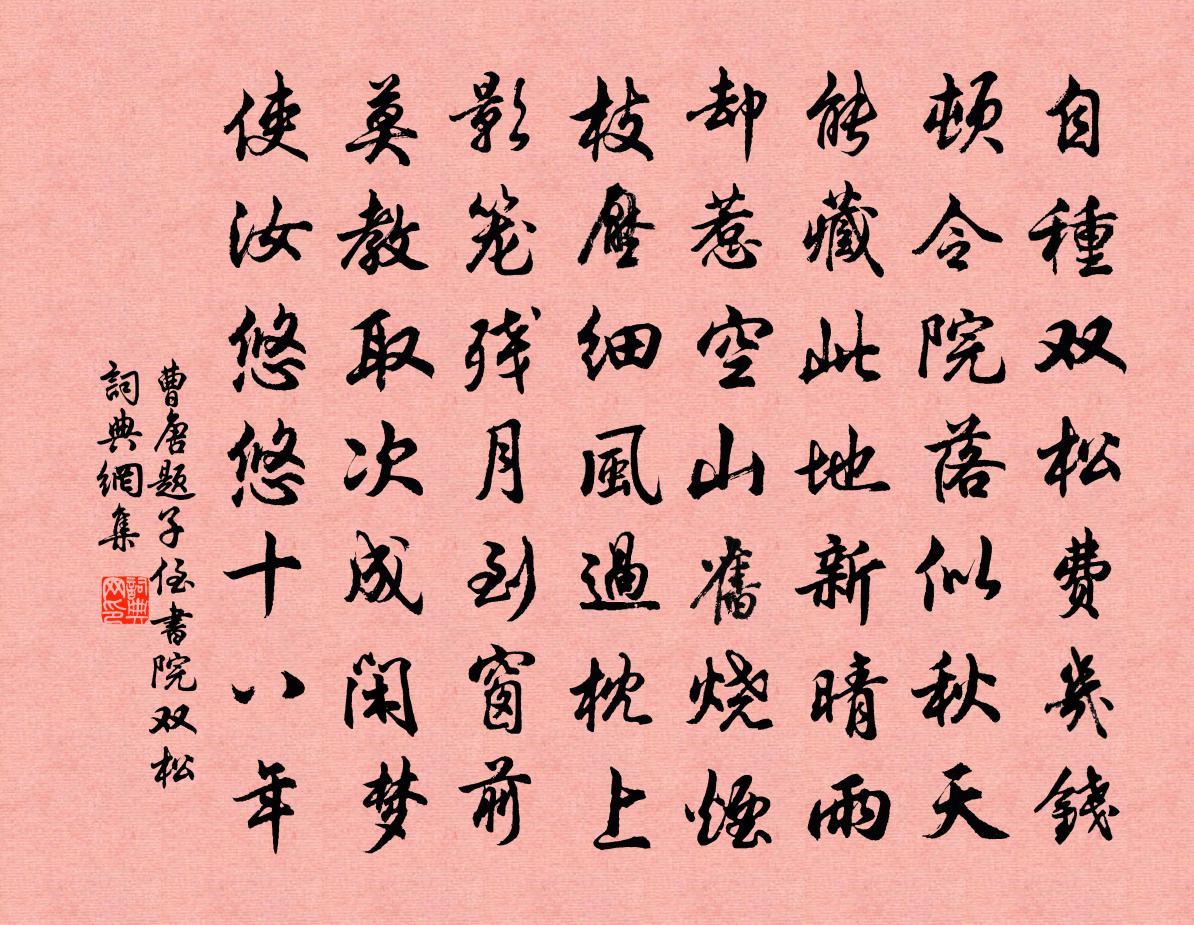 自種双松費幾錢
頓令院落似秋天
能藏此地新晴雨
却惹空山舊烧煙
枝壓細風過枕上
影笼残月到窗前
莫教取次成闲梦
使汝悠悠十八年
曹唐题子侄書院双松
詞典網集
詞典网印